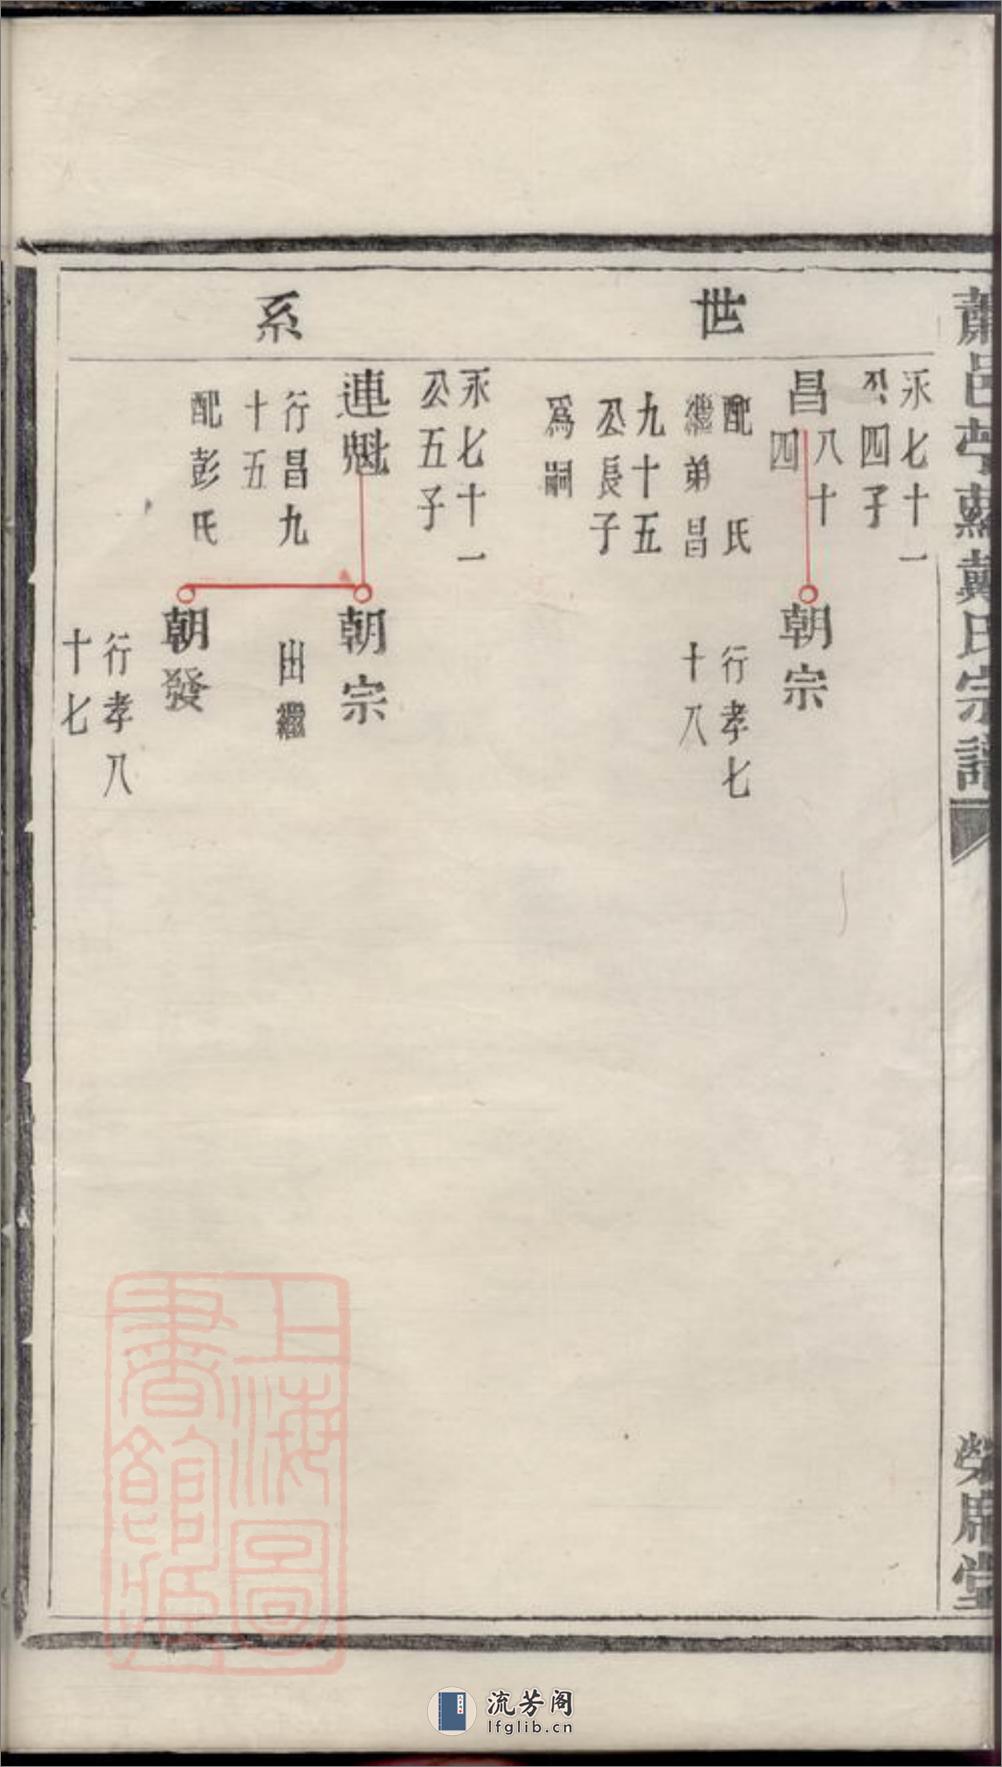 蕭邑
戴氏宗譜
榮席堂
世系
永七十一
公四子
昌八十
四
配　氏
繼弟昌
九十五
公長子
爲嗣
朝宗
行孝七
十八
永七十一
公五子
連魁
行昌九
十五
配彭氏
朝宗
出繼
朝發
行孝八
十七
上海圖
書館藏
流芳阁
lfglib.cn